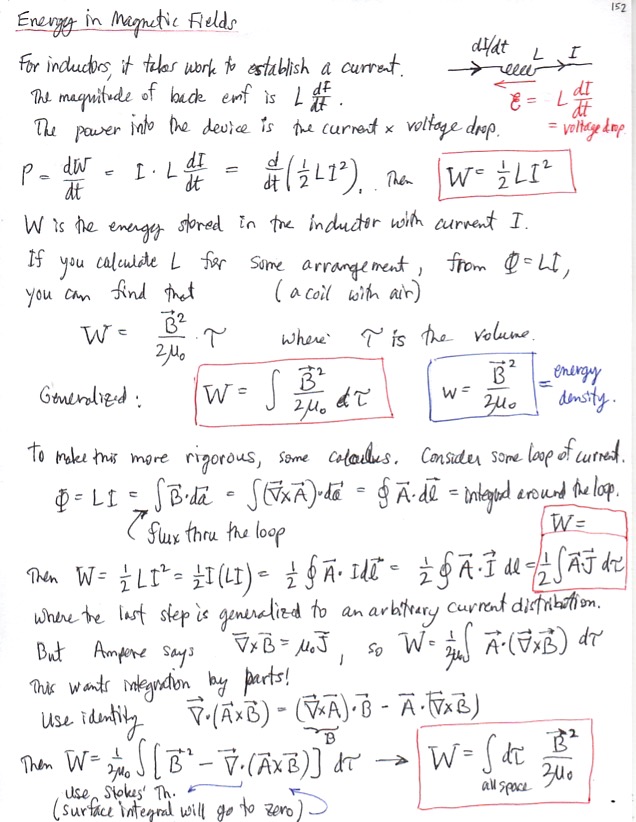 152
Energy in Magnetic Fields
dI/dt L I
For inductors, it takes work to establish a current.
The magnitude of back emf is L dI/dt.
ℰ = L dI/dt
The power into the device is the current × voltage drop.
= voltage drop
P = dW/dt = I · L dI/dt = d/dt (½ LI²). Then W = ½ LI²
W is the energy stored in the inductor with current I.
If you calculate L for some arrangement, from Φ = LI,
you can find that (a coil with air)
W = B⃗²/2μ₀ · τ where τ is the volume.
Generalized: W = ∫ B⃗²/2μ₀ dτ w = B⃗²/2μ₀ = energy density.
To make this more rigorous, some calculus. Consider some loop of current.
Φ = LI = ∫ B⃗·da⃗ = ∫(∇⃗×A⃗)·da⃗ = ∮ A⃗·dl⃗ = integral around the loop.
flux thru the loop
W =
Then W = ½ LI² = ½ I(LI) = ½ ∮ A⃗·Idl⃗ = ½ ∮ A⃗·I⃗ dl = ½ ∫ A⃗·J⃗ dτ
where the last step is generalized to an arbitrary current distribution.
But Ampere says ∇⃗×B⃗ = μ₀J⃗, so W = 1/2μ₀ ∫ A⃗·(∇⃗×B⃗) dτ
This wants integration by parts!
Use identity ∇⃗·(A⃗×B⃗) = (∇⃗×A⃗)·B⃗ - A⃗·(∇⃗×B⃗)
B⃗
Then W = 1/2μ₀ ∫ [B⃗² - ∇⃗·(A⃗×B⃗)] dτ → W = ∫ dτ B⃗²/2μ₀
all space
use Stokes' Th.
(surface integral will go to zero)